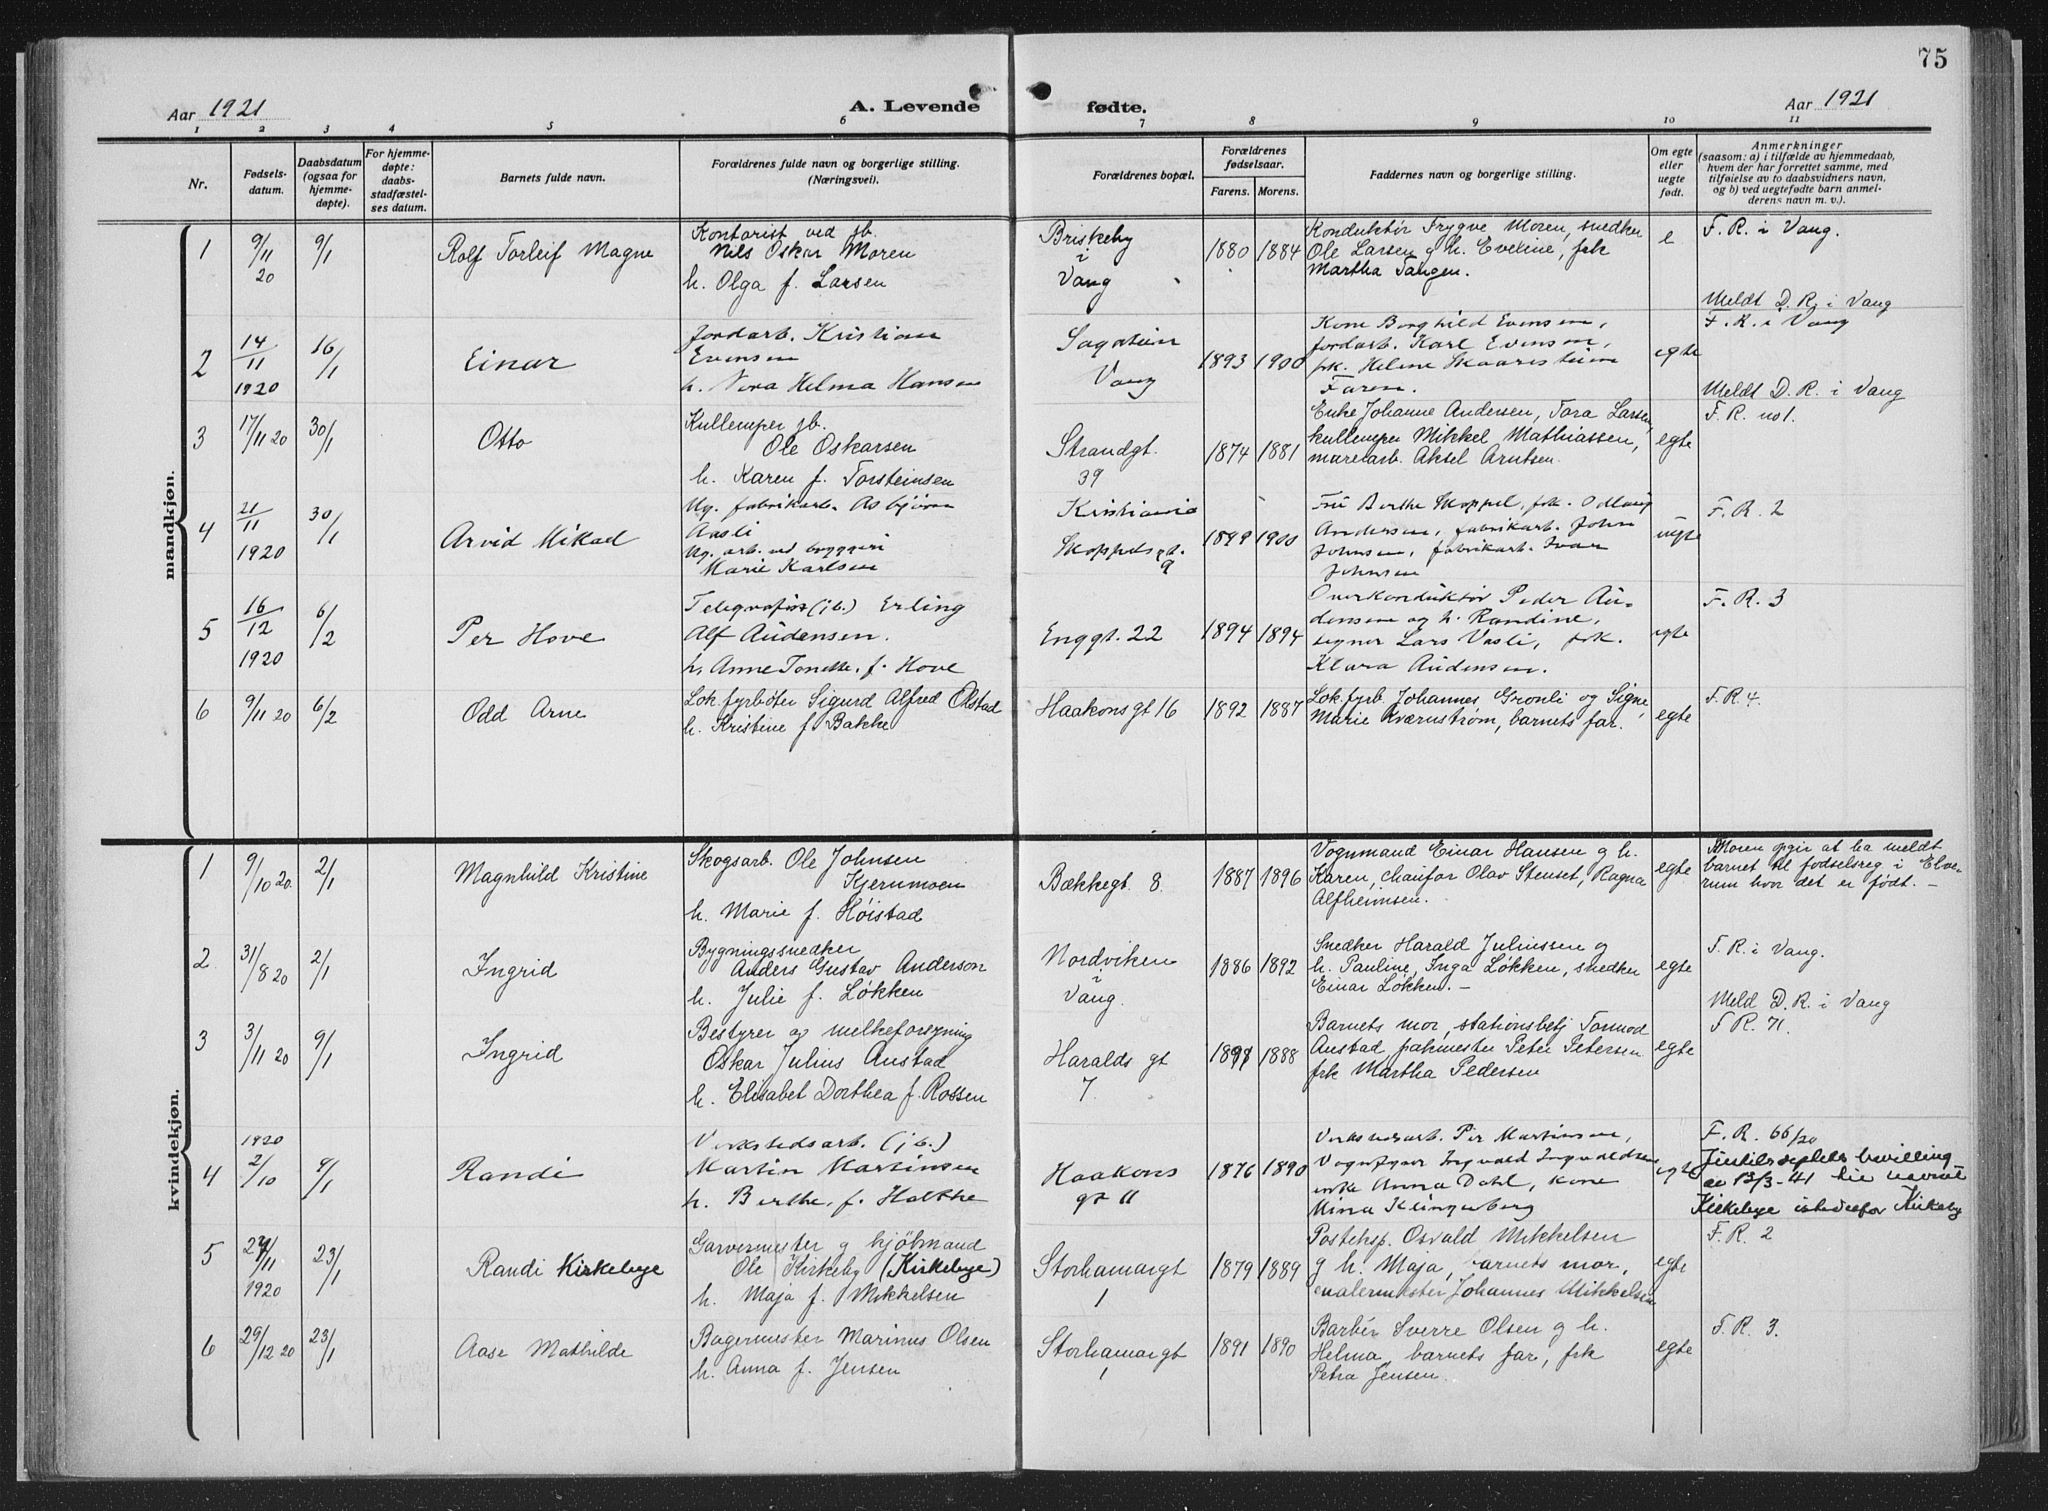 75
Aar 1921 A. Levende fødte. Aar 1921
1 2 3 4 5 6 7 8 9 10 11
Nr.
Fødsels-
datum.
Daabsdatum
(ogsaa for
hjemme-
døpte).
For hjemme-
døpte:
daabs-
stadfæstel-
ses datum.
Barnets fulde navn.
Forældrenes fulde navn og borgerlige stilling.
(Næringsvei).
Forældrenes bopæl.
Forældrenes
fødselsaar.
Farens. Morens.
Faddernes navn og borgerlige stilling.
Om egte
eller
uegte
født.
Anmerkninger
(saasom: a) i tilfælde av hjemmedaab,
hvem der har forrettet samme, med
tilføielse av to daabsvidners navn,
og b) ved uegtefødte barn anmel-
derens navn m. v.).
mandkjøn.
1
9/11
20
9/1
Rolf Torleif Magne
Kontorist ved jb.
Nils Oskar Moren
h. Olga f. Larsen
Briskeby
i
Vang
1880 1884
Konduktør Trygve Moren, snedker
Ole Larsen g h. Eveline, frk
Martha Tangen.
e
F. R. i Vang.
Meldt D. R. i Vang
2
14/11
1920
16/1
Einar
Jordarb. Kristian
Evensen
h. Nora Helma Hansen
Vang
1893 1900
Kone Borghild Evensen,
jordarb. Karl Evensen,
frk. Helene
Faren.
egte
F. R. i Vang
Meldt D. R. i Vang
3
17/11 20
30/1
Otto
Kullemper jb.
Ole Oskarsen
h. Karen f. Torsteinsen
Strandgt.
39
1874 1881
Enke Johanne Andersen, Tora Larsen,
kullemper Mikkel Mathiassen,
Aksel Arntsen.
egte
F. R. no 1.
4
21/11
1920
30/1
Arvid Mikad
Ug. fabrikarb. Asbjørn
Aasli
Ug. arb. ved bryggeri
Marie Karlsen
Kristiania
9
1899 1900
Fru Berthe Skoppel, frk. Odlaug
Andersen, fabrikarb. John
Johnsen, fabrikarb. Ivar
Johnsen
uegte
F. R. 2
5
16/12
1920
6/2
Per Hove
Telegrafist (jb.) Erling
Alf Audensen.
h. Anne Tonette f. Hove
Enggt. 22
1894 1894
Overkonduktør Peder Au-
densen og h. Randine,
Lars Vasli, frk.
Klara Audensen.
egte
F. R. 3
6
9/11 20
6/2
Odd Arne
Lok. fyrbøter Sigurd Alfred Olstad
h. Kristine f. Bakke
Haakons gt 16
1892 1887
Lok. fyrb. Johannes Grønli og Signe,
Marie Kværnstrøm, barnets far.
egte
F. R. 4.
kvindekjøn.
1
9/10 20.
2/1
Magnhild Kristine
Skogsarb. Ole Johnsen
Kjernmoen
h. Marie f. Høistad
Bækkegt. 8.
1887 1896
Vognmand Einar Hansen g h.
Karen, chaufør Olav Stenset, Ragna
Alfheimsen.
egte
Moren opgir at ha meldt
barnet til fødselsreg i Elve-
rum hvor det er født. –
2
31/8 20
2/1
Ingrid
Bygningssnedker
Anders Gustav Anderson
h. Julie f. Løkken
Nordviken
i
Vang.
1886 1892
Snedker Harald Juliussen og
h. Pauline, Inga Løkken, snedker
Einar Løkken. –
egte
F. R. i Vang.
Meld D. R. i Vang
3
3/11 20
9/1
Ingrid
Bestyrer og melkeforsyning
Oskar Julius Austad
h. Elisabet Dorthea f. Rossen
Haralds gt
7.
1888
Barnets mor, stationsbetj Tormod
Austad, pakmester Peter Petersen
frk Martha Pedersen
egte
F R. 71.
4
1920
2/10
9/1
Randi
Verkstedsarb. (jb.)
Martin Martinsen
h. Berthe f. Holthe
Haakons
gt 11
1876 1890
Verkstedsarb. Per Martinsen,
Vognfyrer Ingvald Ingvaldsen
enke Anna Dahl, kone
Mina Klingenberg
egte
F. R. 66/20
Justitsdeptets bevilling
av 13/3-41 til navnet
Kirkebye istedetfor Kirkeby
5
27/11
1920
23/1
Randi Kirkebye
Garvermester g kjøbmand
Ole Kirkeby (Kirkebye)
h. Maja f. Mikkelsen
Storhamargt
1
1879 1889
Posteksp. Osvald Mikkelsen
g h. Maja, barnets mor,
malermester Johannes Mikkelsen
egte
F. R. 2
6
29/12 20
23/1
Aase Mathilde
Bagermester Marinus Olsen
h. Anna f. Jensen
Storhamargt
1
1891 1890
Barbér Sverre Olsen g h.
Helma, barnets far, frk
Petra Jensen.
egte
F. R. 3.